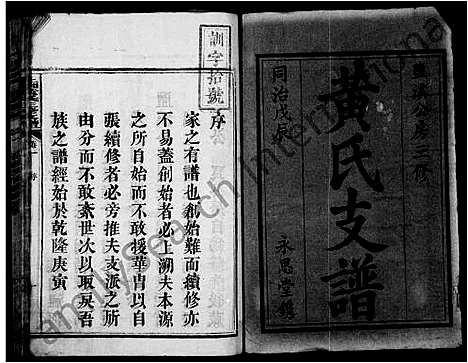 公房三修
黃氏支譜
同治戊辰
永思堂鐫
訓字拾號
序
家之有譜也創始難而續修亦
不易蓋創始者必一溯夫本源
之所自始而不敢援華胄以自
張續修者必旁推夫支派之所
由分而不敢紊世次以取戾吾
族之譜經始於乾隆庚寅